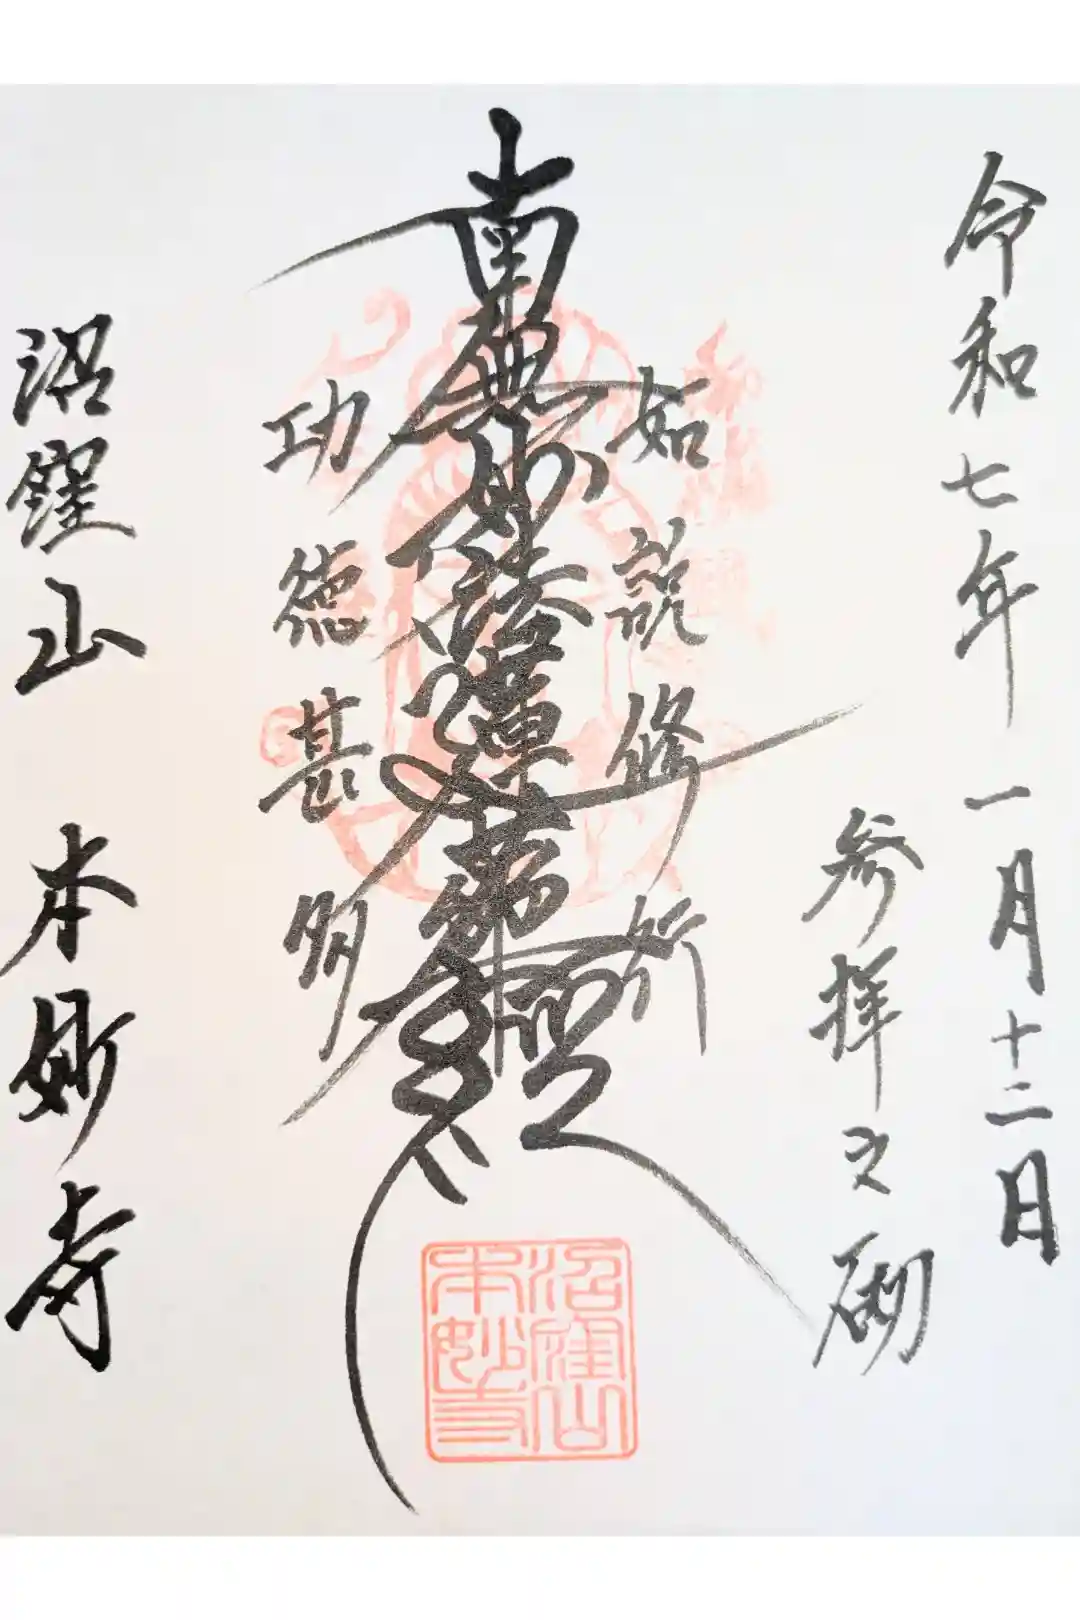 令和七年一月十二日
参拝之砌
如説修行
南無妙法蓮華経
功徳甚多
沼窪山 本妙寺
沼窪山
本妙寺